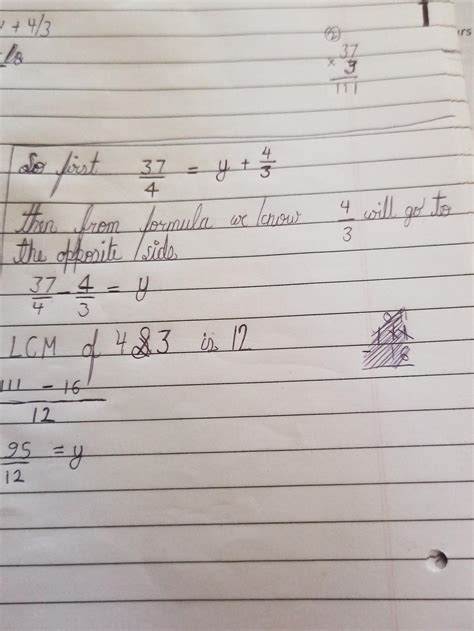 + 4/3
②
37
× 3
111
rs
So first 37/4 = y + 4/3
then from formula we know 4/3 will go to
the opposite side
37/4 - 4/3 = y
LCM of 4 & 3 is 12
111 - 16
12
95/12 = y